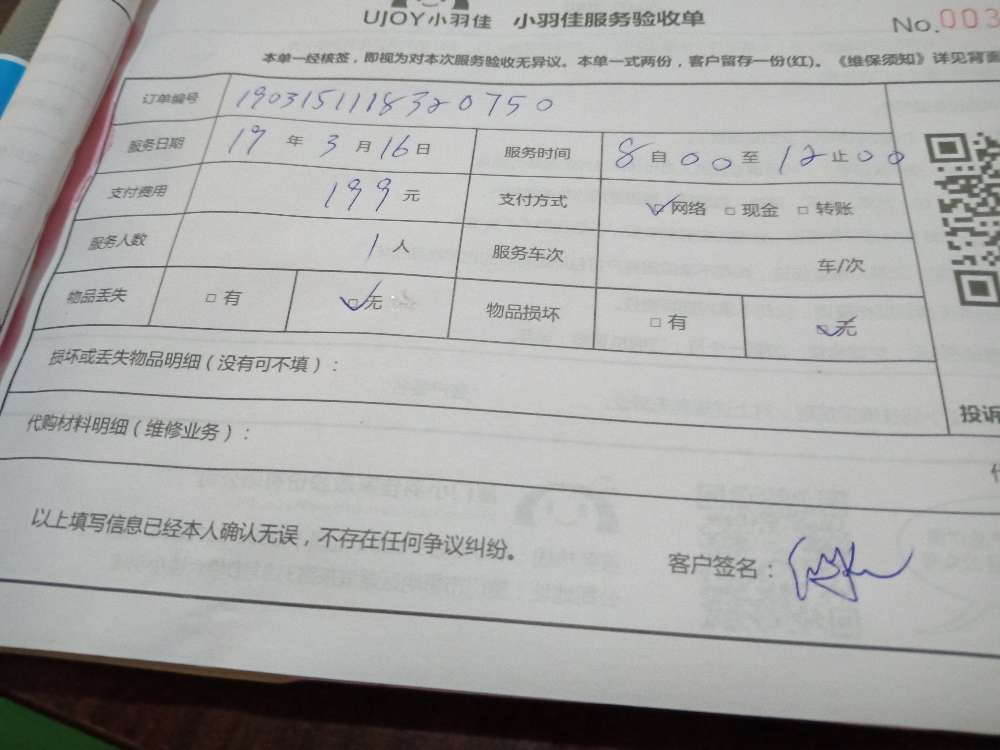 UJOY小羽佳 小羽佳服务验收单
No.003
本单一经核签，即视为对本次服务验收无异议。本单一式两份，客户留存一份(红)。《维保须知》详见背面
订单编号 1903151118320750
服务日期 19 年 3 月 16 日 服务时间 8 自 00 至 12 止 00
支付费用 199 元 支付方式 ☑网络 □现金 □转账
服务人数 1 人 服务车次 车/次
物品丢失 □有 ☑无 物品损坏 □有 ☑无
损坏或丢失物品明细（没有可不填）：
投诉
代购材料明细（维修业务）：
以上填写信息已经本人确认无误，不存在任何争议纠纷。
客户签名：